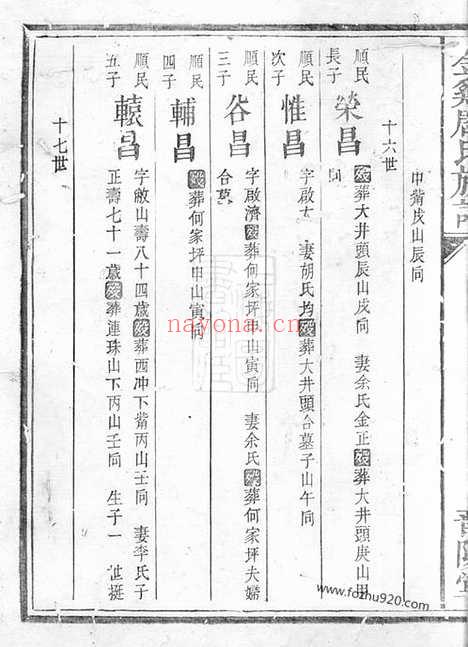 中背戌山辰向
十六世
順民
長子
榮昌
歿葬大井頭辰山戌向 妻余氏金正歿葬大井頭庚山甲
向
順民
次子
惟昌
字啟 妻胡氏均歿葬大井頭合墓子山午向
順民
三子
谷昌
字啟濟歿葬何家坪申山寅向 妻余氏歿葬何家坪夫孺
合墓
順民
四子
輔昌
歿葬何家坪申山寅向
順民
五子
轅昌
字敝山壽八十四歲歿葬西冲下背丙山壬向 妻李氏子
正壽七十一歲歿葬連珠山下丙山壬向 生子一 世挺
十七世
nayona.cn
www.fozhu920.com